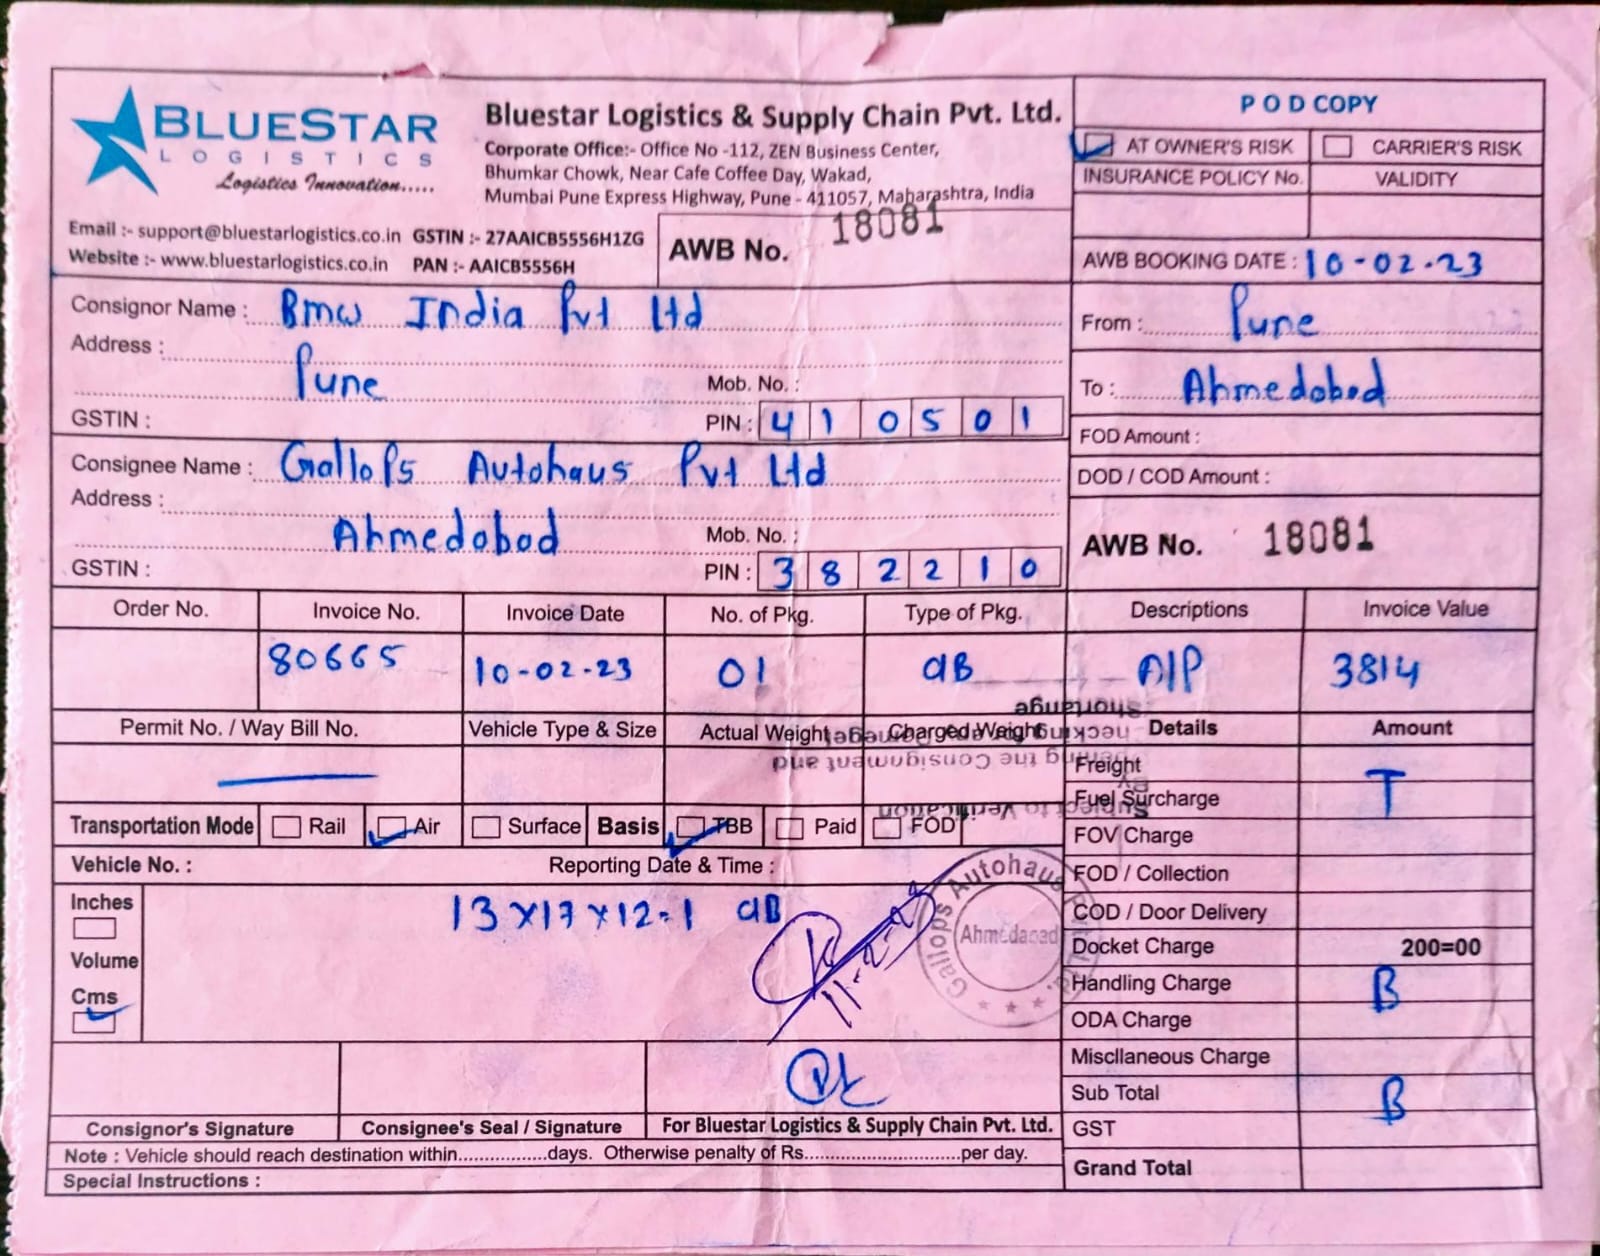 BLUESTAR
LOGISTICS
Logistics Innovation.....
Bluestar Logistics & Supply Chain Pvt. Ltd.
Corporate Office:- Office No -112, ZEN Business Center,
Bhumkar Chowk, Near Cafe Coffee Day, Wakad,
Mumbai Pune Express Highway, Pune - 411057, Maharashtra, India
Email :- support@bluestarlogistics.co.in GSTIN :- 27AAICB5556H1ZG
Website :- www.bluestarlogistics.co.in PAN :- AAICB5556H
AWB No. 18081
POD COPY
AT OWNER'S RISK CARRIER'S RISK
INSURANCE POLICY No. VALIDITY
AWB BOOKING DATE : 10-02-23
Consignor Name : Bmw India Pvt Ltd
Address :
Pune Mob. No. :
GSTIN : PIN : 410501
From : Pune
To : Ahmedabad
FOD Amount :
DOD / COD Amount :
Consignee Name : Gallops Autohaus Pvt Ltd
Address :
Ahmedabad Mob. No. :
GSTIN : PIN : 382210
AWB No. 18081
Order No. Invoice No. Invoice Date No. of Pkg. Type of Pkg. Descriptions Invoice Value
80665 10-02-23 01 CB A/P 3814
Permit No. / Way Bill No. Vehicle Type & Size Actual Weight Charged Weight Details Amount
Subject to Verification
By
Opening the Consignment and
Shortange
Transportation Mode Rail Air Surface Basis TBB Paid FOD
Vehicle No. : Reporting Date & Time :
Inches
Volume
Cms
13 x 17 x 12 - 1 CB
11-2-23
Gallops Autohaus Pvt. Ltd.
Ahmedabad
Freight T
Fuel Surcharge
FOV Charge
FOD / Collection
COD / Door Delivery
Docket Charge 200=00
Handling Charge B
ODA Charge
Miscllaneous Charge
Sub Total B
GST
Grand Total
Consignor's Signature Consignee's Seal / Signature For Bluestar Logistics & Supply Chain Pvt. Ltd.
Note : Vehicle should reach destination within................days. Otherwise penalty of Rs............................per day.
Special Instructions :